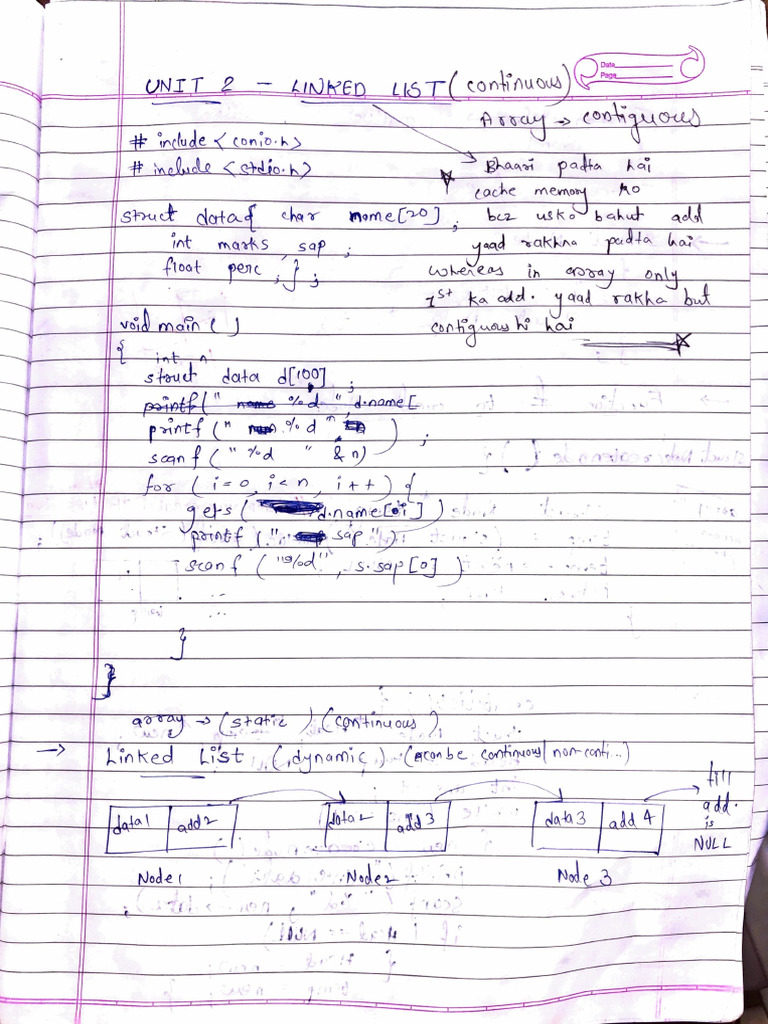 Date
Page
UNIT 2 - LINKED LIST (continuous)
Array → contiguous
# include <conio.h>
# include <stdio.h>
Bhaari padta hai
cache memory ko
bcz usko bahut add
yaad rakhna padta hai
whereas in array only
1st ka add. yaad rakha but
contiguous hi hai
struct data{ char name[20] ;
int marks, sap ;
float perc ; } ;
void main ( )
{ int n
struct data d[100] ;
printf(" %d ", d.name[
printf (" %d " ) ;
scanf (" %d " & n)
for ( i=0, i<n, i++ ) {
gets ( d.name[i] )
printf (" sap ")
scanf ( "%d" , s.sap[0] )
}
}
array → (static) (continuous)
→ Linked List (dynamic) (can be continuous/non-conti...)
data1 add2 data2 add3 data3 add4
till
add.
is
NULL
Node1 Node2 Node 3